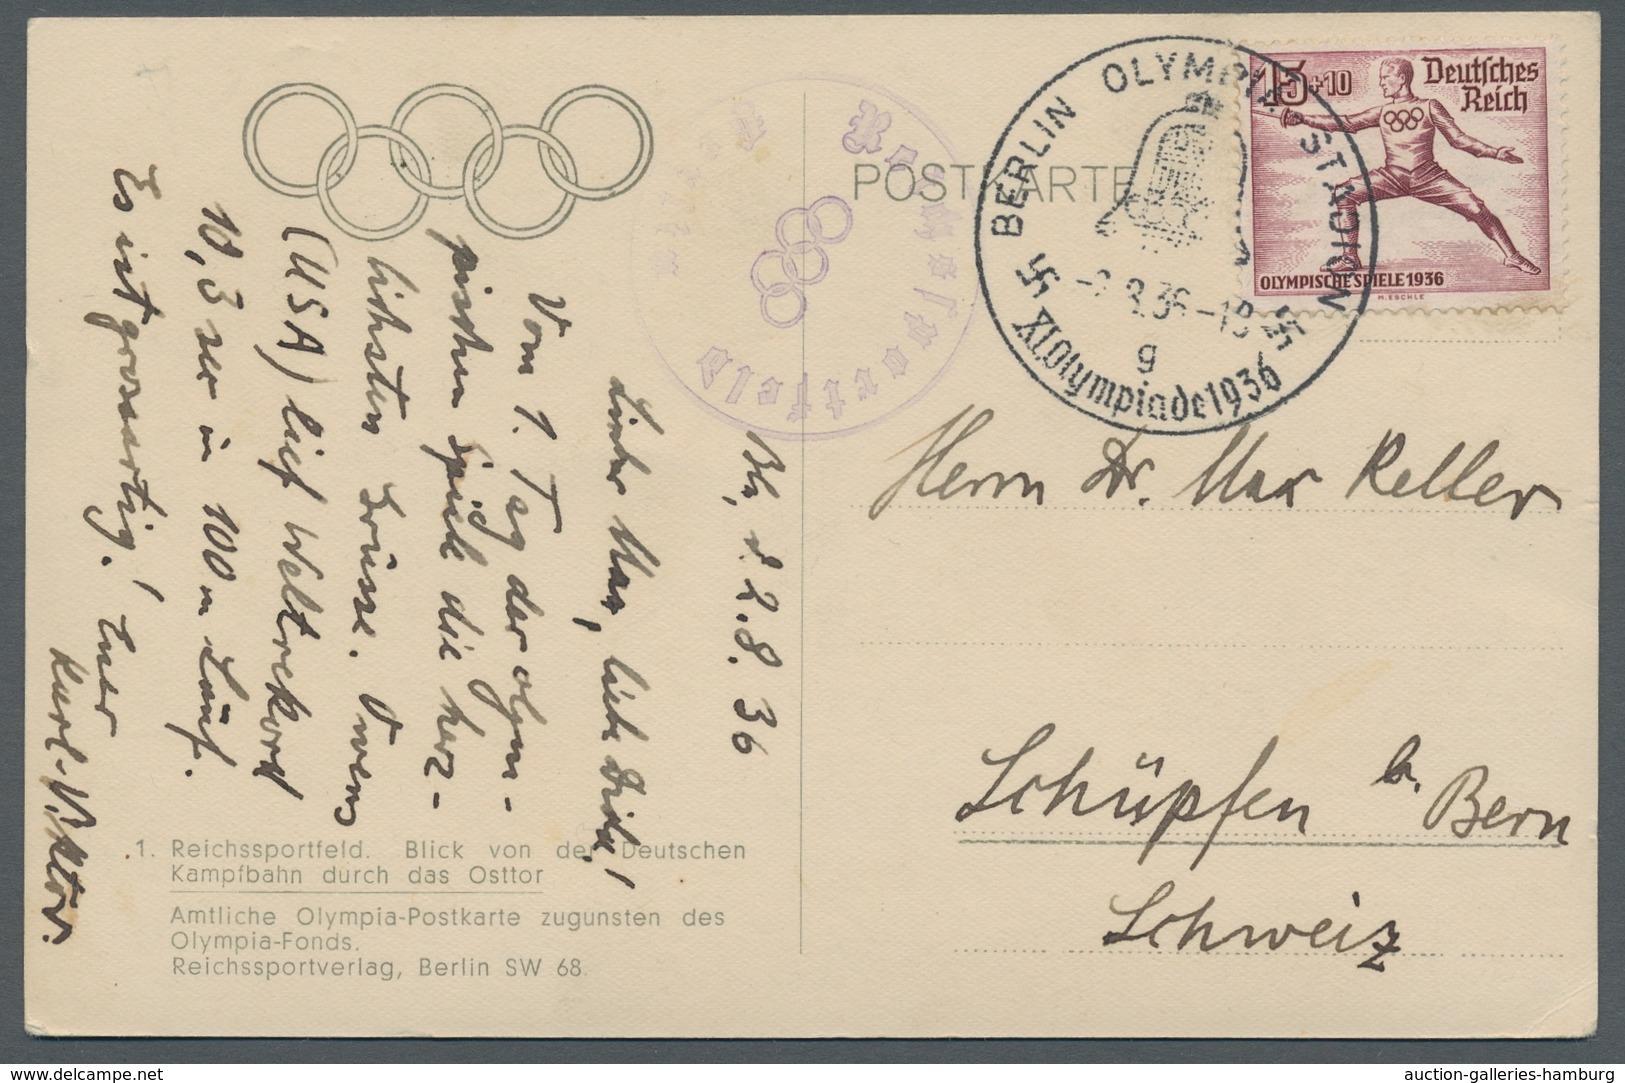 Bln, d. 2.8.36
Lieber Max, liebe Dida!
Vom 1. Tag der olym-
pischen Spiele die herz-
lichsten Grüsse. Owens
(USA) lief Weltrekord
10,3 sec in 100 m Lauf.
Es ist grossartig! Euer
Karl-Viktor.
1. Reichssportfeld. Blick von der Deutschen
Kampfbahn durch das Osttor
Amtliche Olympia-Postkarte zugunsten des
Olympia-Fonds.
Reichssportverlag, Berlin SW 68.
POSTKARTE
Reichssportfeld
BERLIN OLYMPIA-STADION
.8.36-18
g
XI. Olympiade 1936
15+10
Deutsches
Reich
OLYMPISCHE SPIELE 1936
M. ESCHLE
Herrn Dr. Max Keller
Schüpfen b. Bern
Schweiz
auction-galleries-hamburg